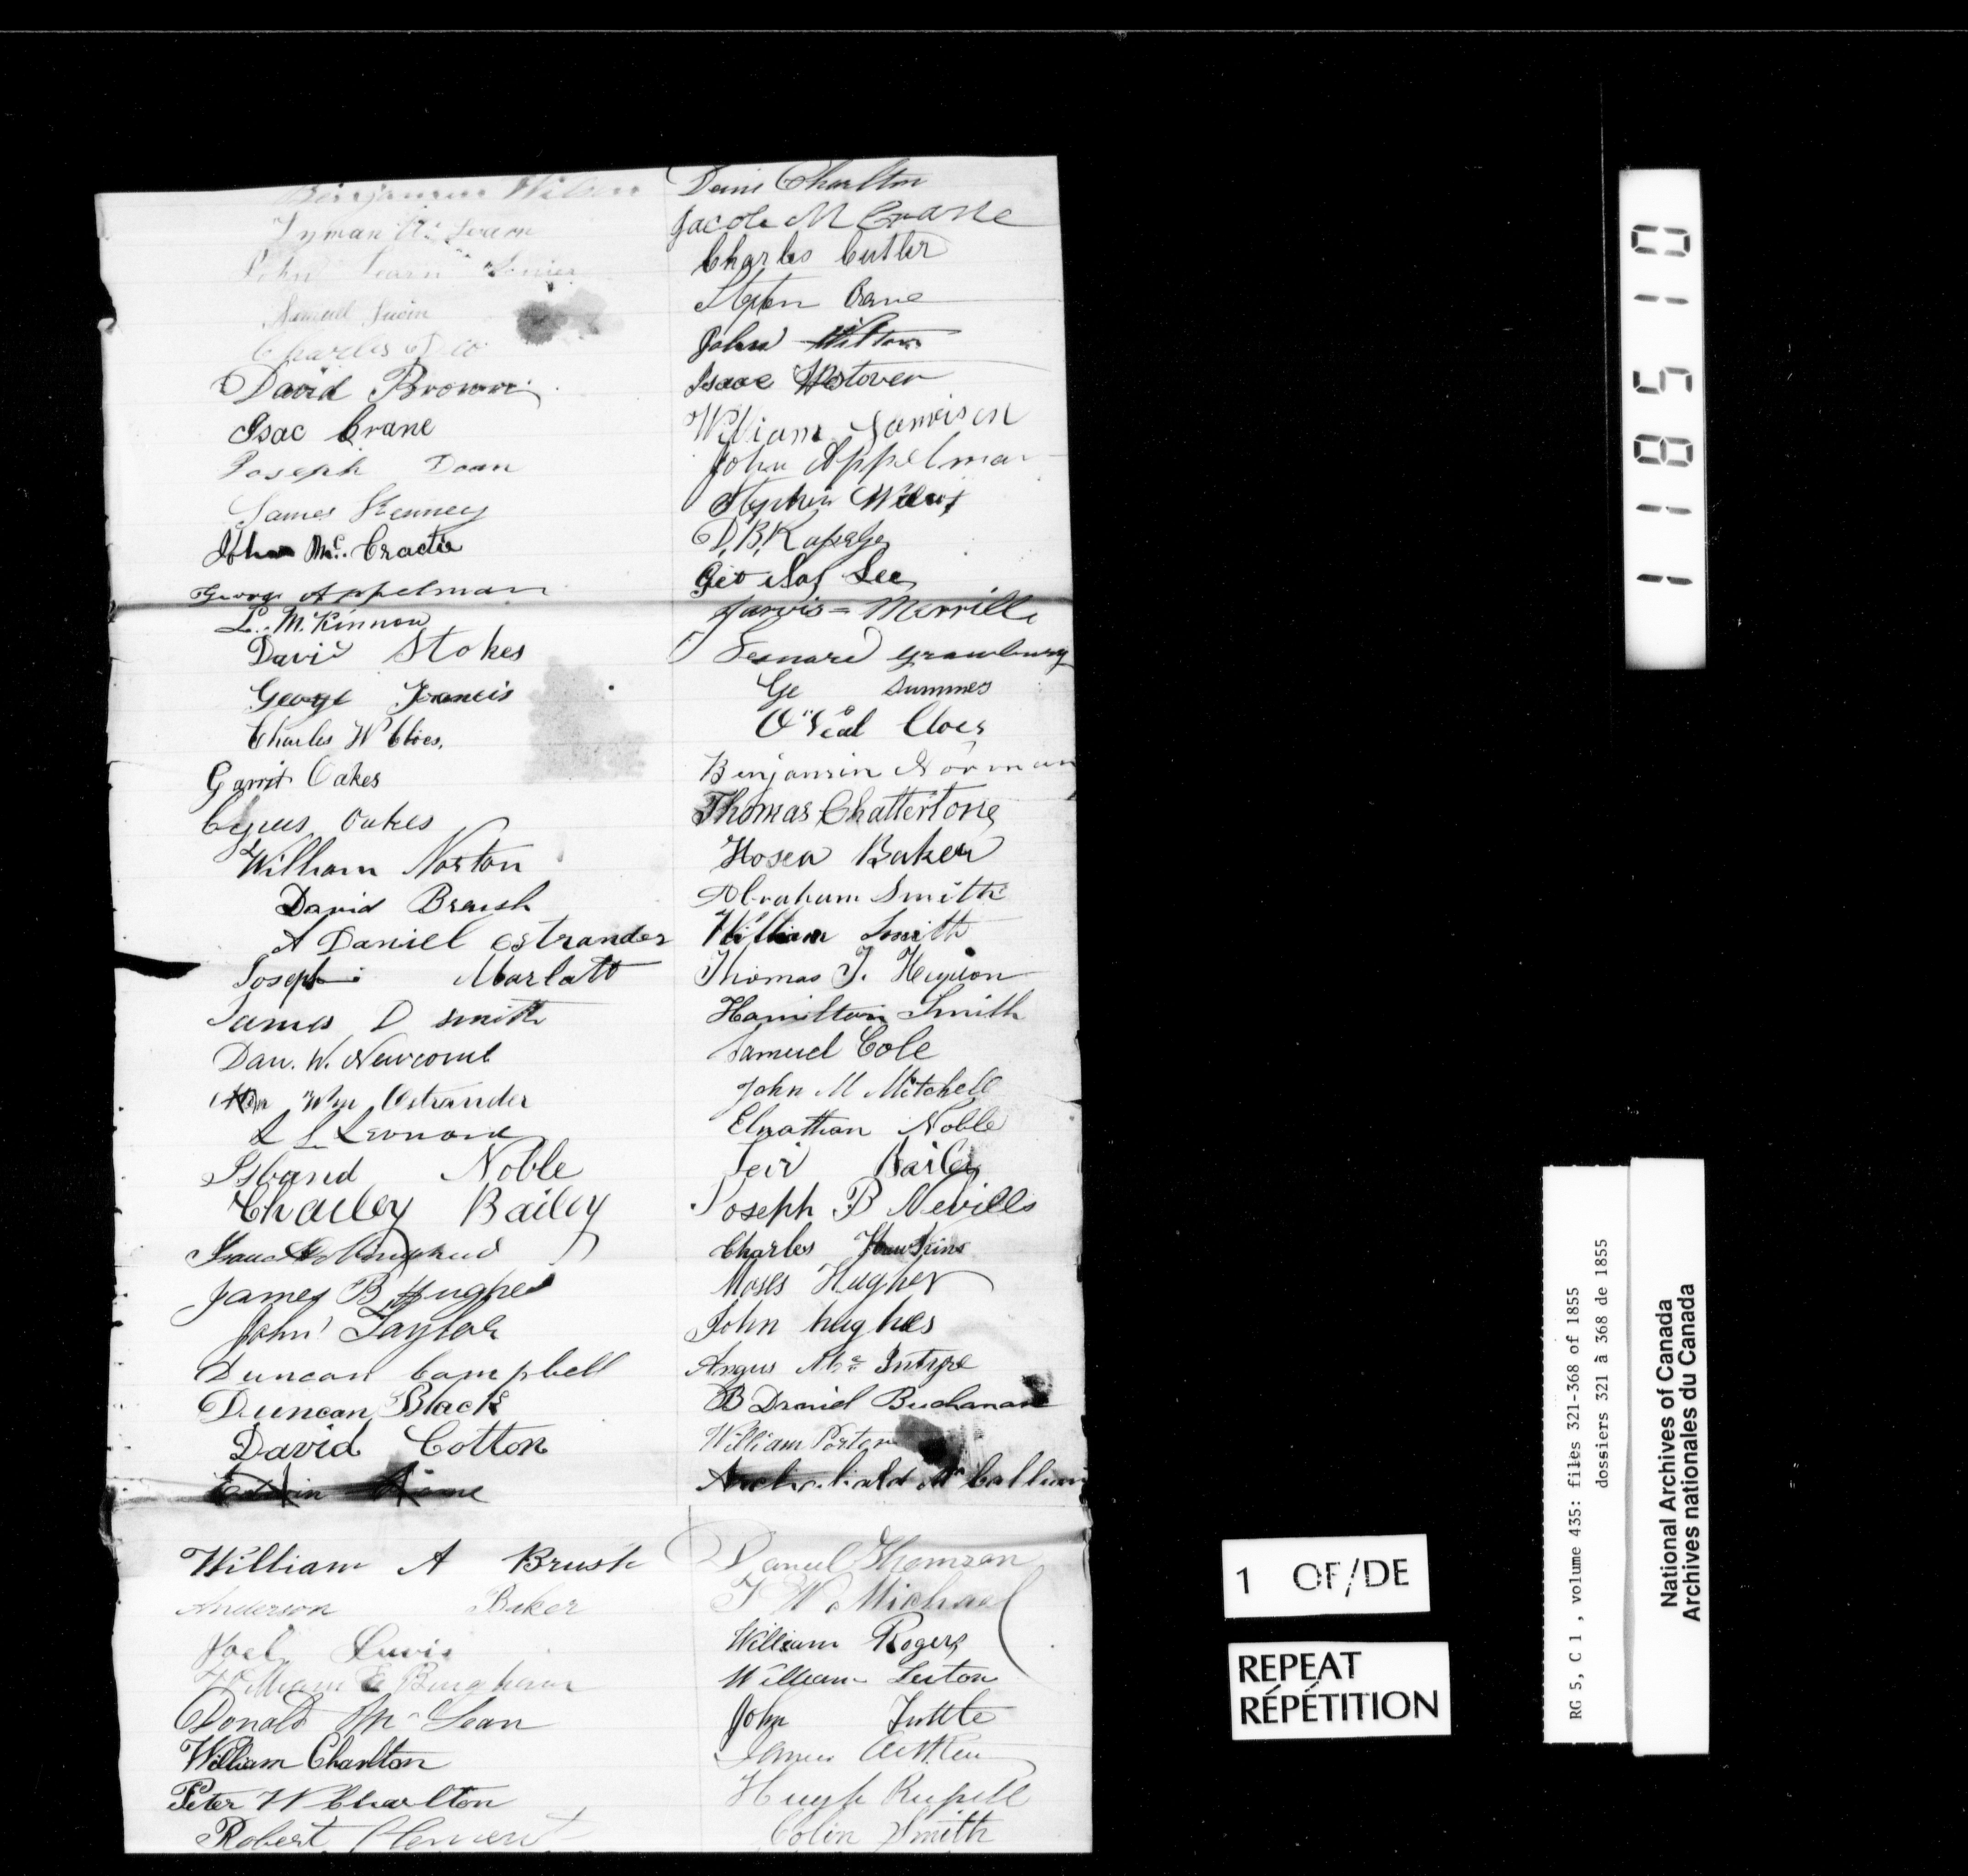 Benjamin Wilson
Lyman
John Learn Senior
Samuel
Charles
David Brown
Isac Crane
Joseph Doan
James Kenney
John Mc. Cractie
George Appelman
L. McKinnon
David Stokes
George Francis
Charles W Cloes.
Garrit Oakes
Cyrus Oakes
William Norton
David Brush
A Daniel Ostrander
Joseph Marlatt
James D Smith
Dan. W. Newcomb
Wm Ostrander
L L Leonard
Noble
Charley Bailey
Isaac
James B Hughes
John Taylor
Duncan Campbell
Duncan Black
David Cotton
William A Brush
Anderson Baker
Joel Lewis
William E Bingham
Donald Mc Lean
William Charlton
Peter W Charlton
Robert
Denis Charlton
Jacob M Crane
Charles Cutler
Stephen Crane
John Wilton
Isaac Westover
William Jamison
John Appelman
Stephen
D. B.
Lee
Jarvis = Merrill
Lenard
Ge Summes
O'Neal Cloes
Benjamin Norman
Thomas Chattertone
Hosea Baker
Abraham Smith
William Smith
Thomas J.
Hamilton Smith
Samuel Cole
John M Mitchell
Elnathan Noble
Bailey
Joseph B Nevills
Charles Hawkins
Moses Hughes
John hughes
Angus Mc Intyre
B Daniel Buchanan
William Porter
Archibald Mc Callum
Daniel Thomson
J W Michael
William Rogers
William Luton
John Tuttle
James Aitken
Hugh Russell
Colin Smith
118510
1 OF/DE
REPEAT
RÉPÉTITION
RG 5, C 1 , volume 435: files 321-368 of 1855
dossiers 321 à 368 de 1855
National Archives of Canada
Archives nationales du Canada